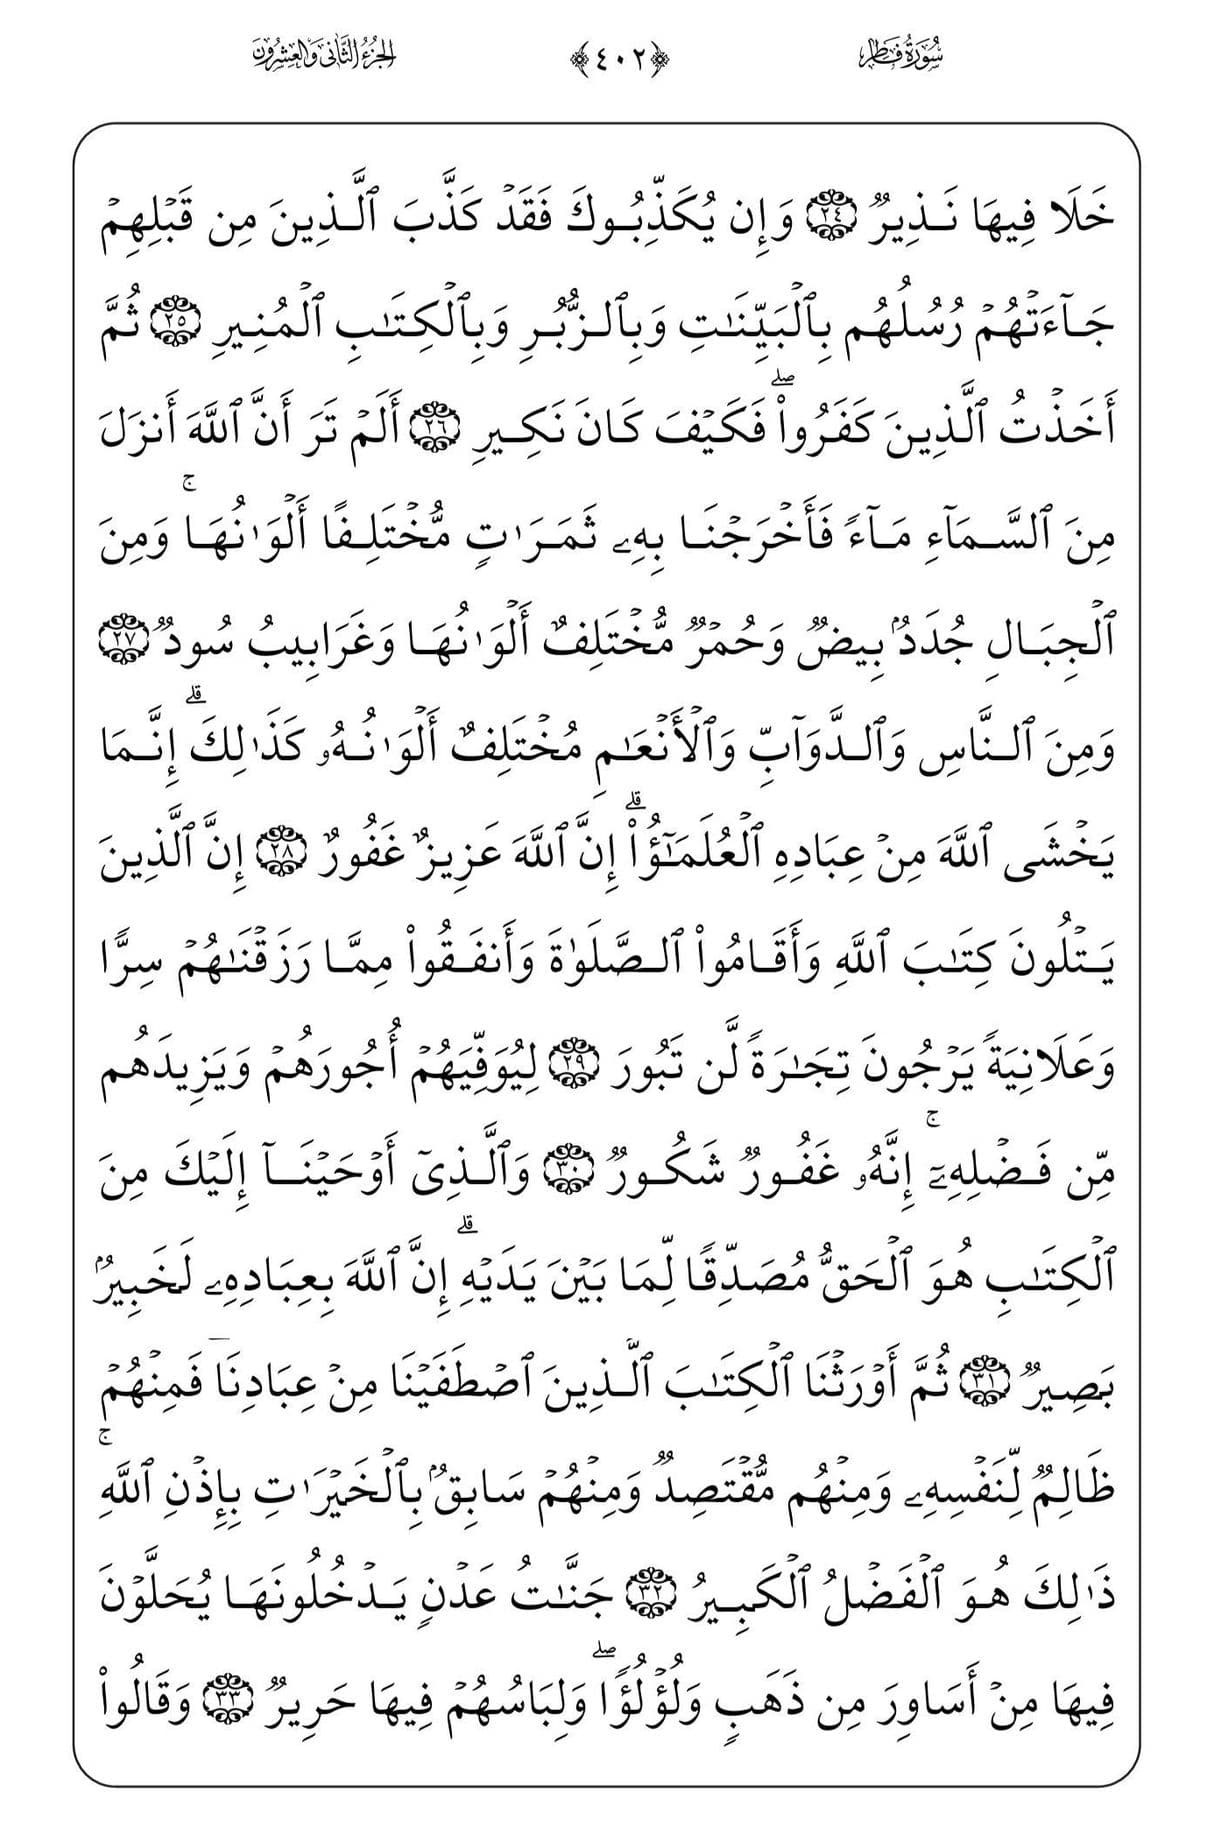 سُورَةُ فَاطِر ﴿٤٠٢﴾ الجُزْءُ الثَّانِي وَالعِشْرُونَ
خَلَا فِيهَا نَذِيرٌ ٢٤ وَإِن يُكَذِّبُوكَ فَقَدْ كَذَّبَ ٱلَّذِينَ مِن قَبْلِهِمْ
جَآءَتْهُمْ رُسُلُهُم بِٱلْبَيِّنَٰتِ وَبِٱلزُّبُرِ وَبِٱلْكِتَٰبِ ٱلْمُنِيرِ ٢٥ ثُمَّ
أَخَذْتُ ٱلَّذِينَ كَفَرُوا۟ ۖ فَكَيْفَ كَانَ نَكِيرِ ٢٦ أَلَمْ تَرَ أَنَّ ٱللَّهَ أَنزَلَ
مِنَ ٱلسَّمَآءِ مَآءً فَأَخْرَجْنَا بِهِۦ ثَمَرَٰتٍ مُّخْتَلِفًا أَلْوَٰنُهَا ۚ وَمِنَ
ٱلْجِبَالِ جُدَدٌۢ بِيضٌ وَحُمْرٌ مُّخْتَلِفٌ أَلْوَٰنُهَا وَغَرَابِيبُ سُودٌ ٢٧
وَمِنَ ٱلنَّاسِ وَٱلدَّوَآبِّ وَٱلْأَنْعَٰمِ مُخْتَلِفٌ أَلْوَٰنُهُۥ كَذَٰلِكَ ۗ إِنَّمَا
يَخْشَى ٱللَّهَ مِنْ عِبَادِهِ ٱلْعُلَمَٰٓؤُا۟ ۗ إِنَّ ٱللَّهَ عَزِيزٌ غَفُورٌ ٢٨ إِنَّ ٱلَّذِينَ
يَتْلُونَ كِتَٰبَ ٱللَّهِ وَأَقَامُوا۟ ٱلصَّلَوٰةَ وَأَنفَقُوا۟ مِمَّا رَزَقْنَٰهُمْ سِرًّا
وَعَلَانِيَةً يَرْجُونَ تِجَٰرَةً لَّن تَبُورَ ٢٩ لِيُوَفِّيَهُمْ أُجُورَهُمْ وَيَزِيدَهُم
مِّن فَضْلِهِۦٓ ۚ إِنَّهُۥ غَفُورٌ شَكُورٌ ٣٠ وَٱلَّذِىٓ أَوْحَيْنَآ إِلَيْكَ مِنَ
ٱلْكِتَٰبِ هُوَ ٱلْحَقُّ مُصَدِّقًا لِّمَا بَيْنَ يَدَيْهِ ۗ إِنَّ ٱللَّهَ بِعِبَادِهِۦ لَخَبِيرٌۢ
بَصِيرٌ ٣١ ثُمَّ أَوْرَثْنَا ٱلْكِتَٰبَ ٱلَّذِينَ ٱصْطَفَيْنَا مِنْ عِبَادِنَا فَمِنْهُمْ
ظَالِمٌ لِّنَفْسِهِۦ وَمِنْهُم مُّقْتَصِدٌ وَمِنْهُمْ سَابِقٌۢ بِٱلْخَيْرَٰتِ بِإِذْنِ ٱللَّهِ ۚ
ذَٰلِكَ هُوَ ٱلْفَضْلُ ٱلْكَبِيرُ ٣٢ جَنَّٰتُ عَدْنٍ يَدْخُلُونَهَا يُحَلَّوْنَ
فِيهَا مِنْ أَسَاوِرَ مِن ذَهَبٍ وَلُؤْلُؤًا ۖ وَلِبَاسُهُمْ فِيهَا حَرِيرٌ ٣٣ وَقَالُوا۟